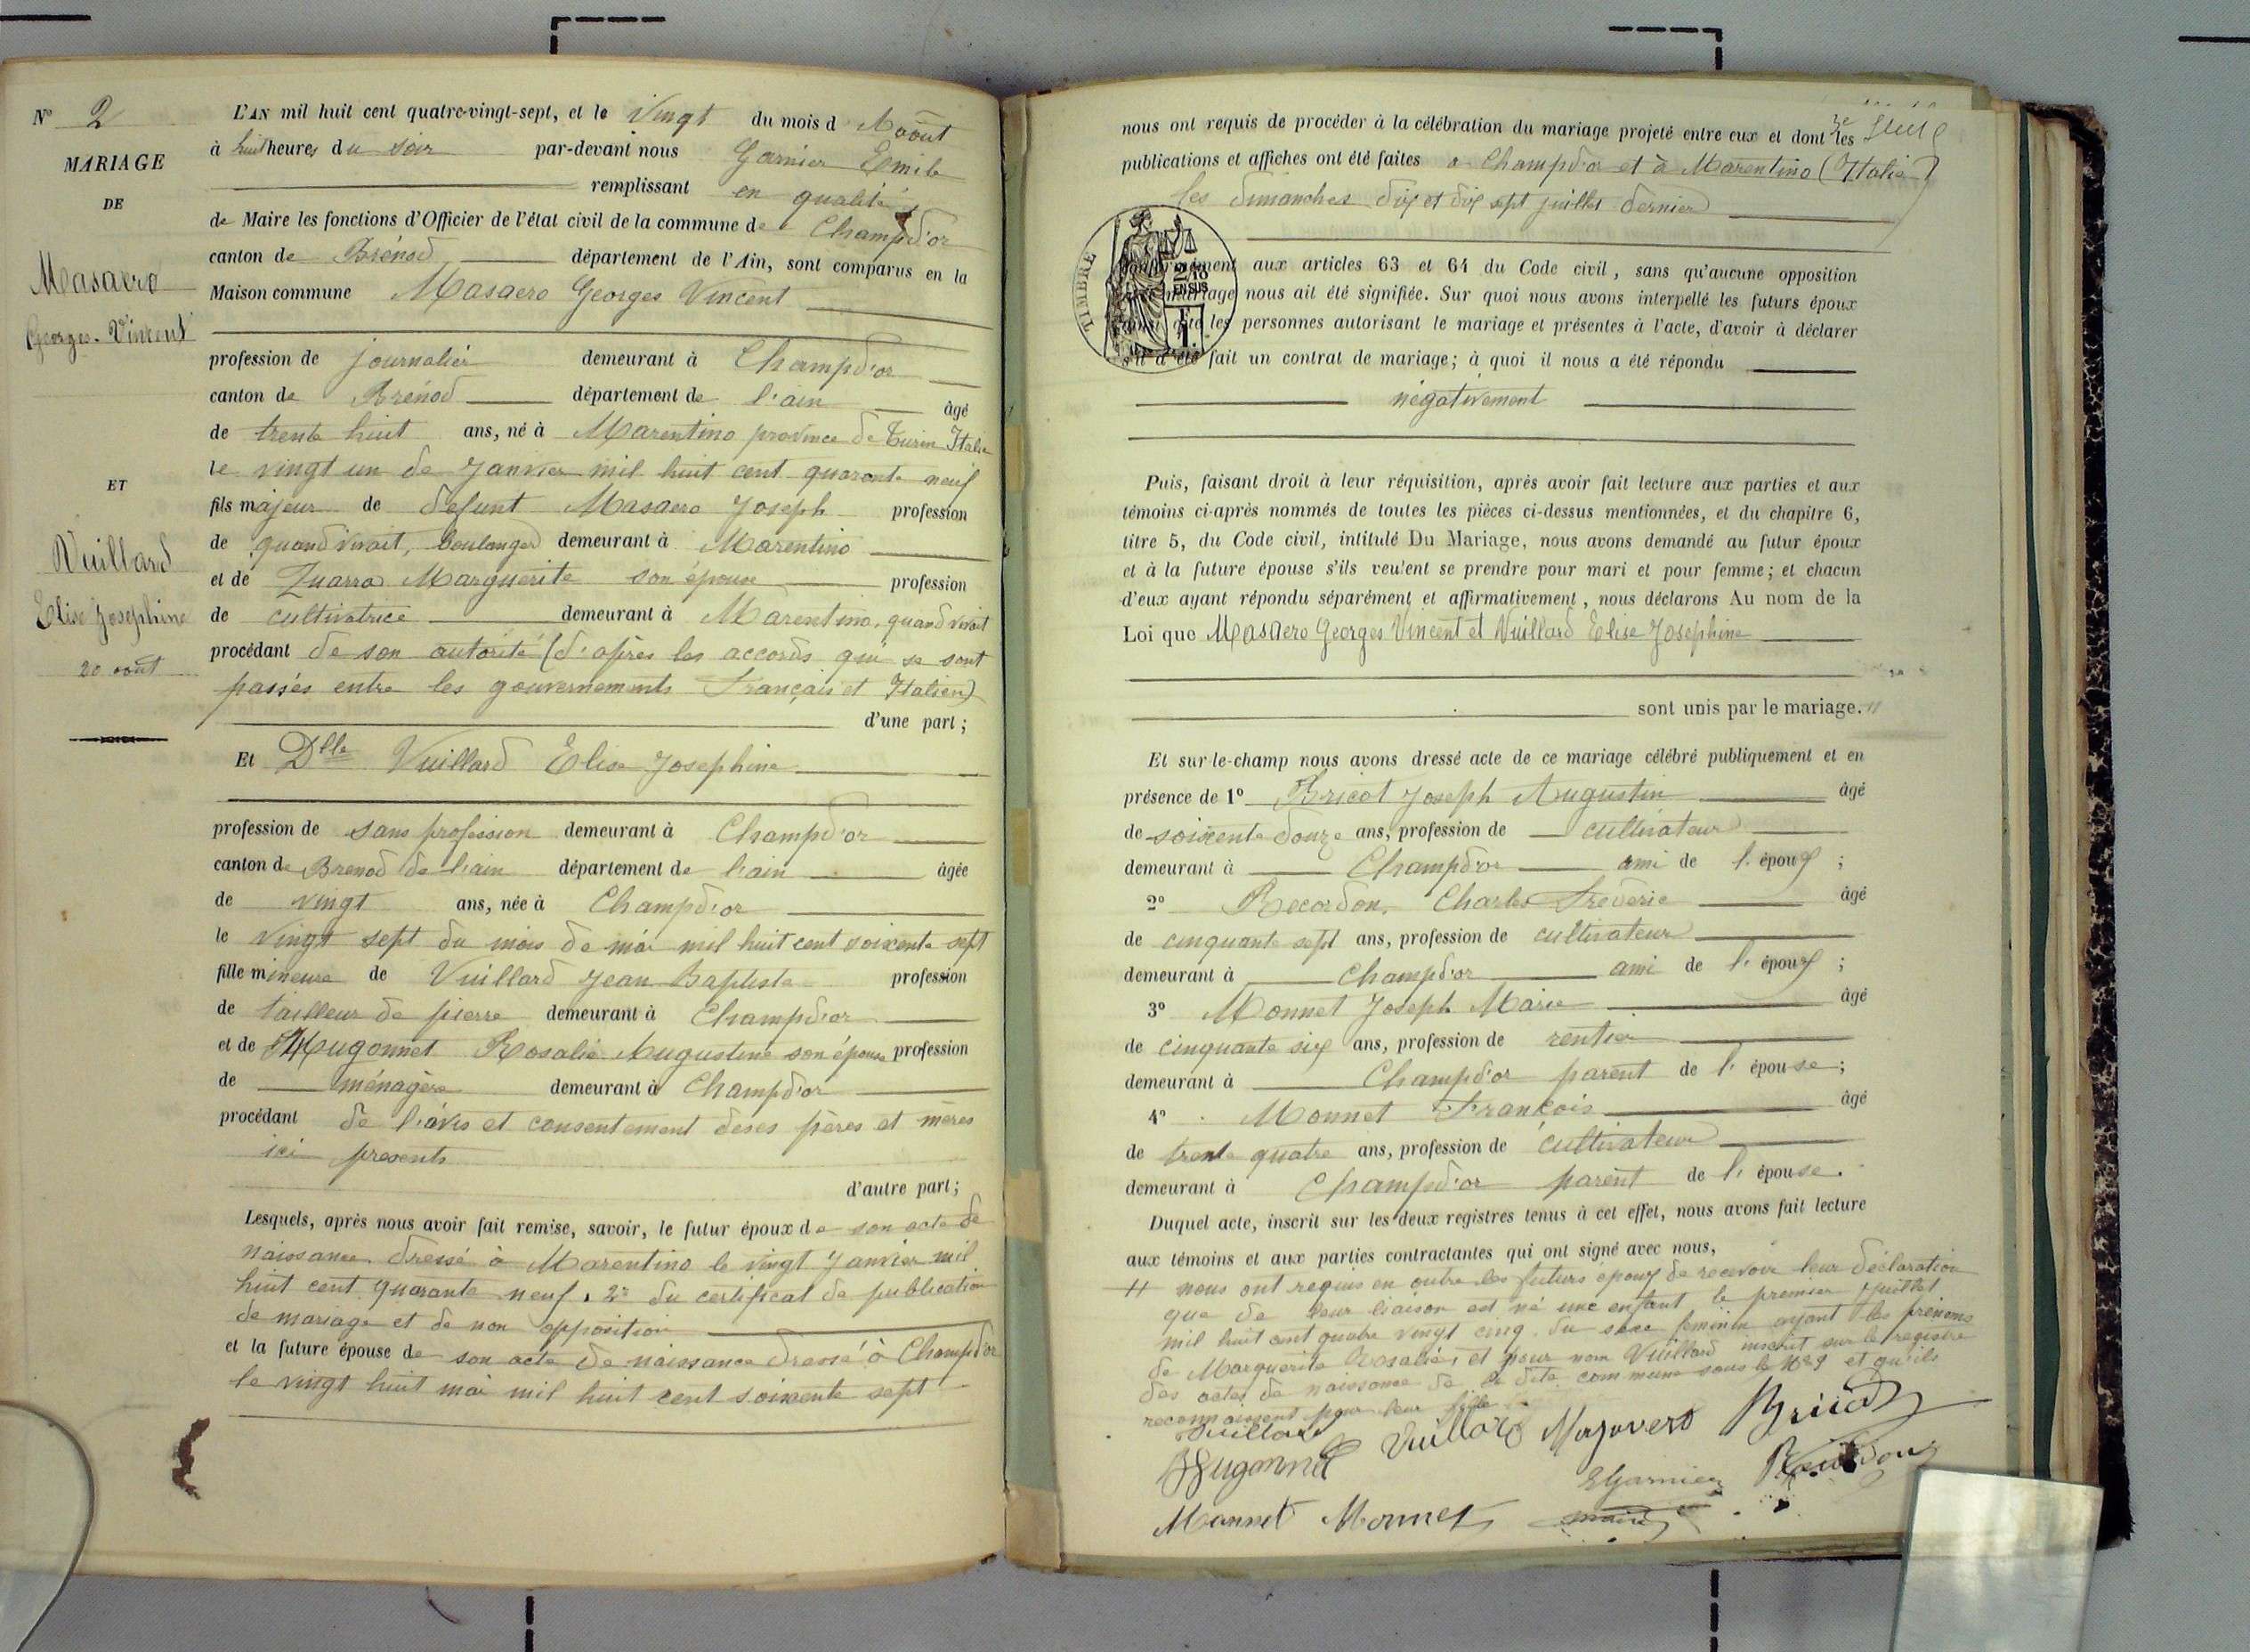 No 2
MARIAGE
DE
Masaero
Georges-Vincent
ET
Vuillard
Elise Josephine
20 aout
L'AN mil huit cent quatre-vingt-sept, et le Vingt du mois d Aoout
à huit heures du soir par-devant nous Garnier Emile
remplissant en qualité
de Maire les fonctions d'Officier de l'état civil de la commune de Champd'or
canton de Brénod département de l'Ain, sont comparus en la
Maison commune Masaero Georges Vincent
profession de journalier demeurant à Champd'or
canton de Brénod département de l'ain âgé
de trente huit ans, né à Marentino province de Turin Italie
le vingt un de Janvier mil huit cent quarante neuf
fils majeur de defunt Masaero Joseph profession
de quand vivait, boulanger demeurant à Marentino
et de Zuarra Marguerite son épouse profession
de cultivatrice demeurant à Marentino, quand vivait
procédant de son autorité (d'après les accords qui se sont
passés entre les gouvernements Français et Italien)
d'une part;
Et Dlle Vuillard Elise Josephine
profession de sans profession demeurant à Champd'or
canton de Brenod de l'ain département de l'ain âgée
de vingt ans, née à Champd'or
le vingt sept du mois de mai mil huit cent soixente sept
fille mineure de Vuillard Jean Baptiste profession
de tailleur de pierre demeurant à Champd'or
et de Hugonnet Rosalie Augustine son épouse profession
de ménagère demeurant à Champd'or
procédant de l'avis et consentement de ses pères et mères
ici presents
d'autre part;
Lesquels, après nous avoir fait remise, savoir, le futur époux de son acte de
naissance dressé à Marentino le vingt Janvier mil
huit cent quarante neuf, 2º du certificat de publication
de mariage et de non opposition
et la future épouse de son acte de naissance dressé à Champd'or
le vingt huit mai mil huit cent soixente sept
nous ont requis de procéder à la célébration du mariage projeté entre eux et dont les
publications et affiches ont été faites a Champd'or et à Marentino (Italie)
les dimanches dix et dix sept juillet dernier
TIMBRE
aux articles 63 et 64 du Code civil, sans qu'aucune opposition
mariage nous ait été signifiée. Sur quoi nous avons interpellé les futurs époux
les personnes autorisant le mariage et présentes à l'acte, d'avoir à déclarer
s'il a été fait un contrat de mariage; à quoi il nous a été répondu
négativement
Puis, faisant droit à leur réquisition, après avoir fait lecture aux parties et aux
témoins ci-après nommés de toutes les pièces ci-dessus mentionnées, et du chapitre 6,
titre 5, du Code civil, intitulé Du Mariage, nous avons demandé au futur époux
et à la future épouse s'ils veulent se prendre pour mari et pour femme; et chacun
d'eux ayant répondu séparément et affirmativement, nous déclarons Au nom de la
Loi que Masaero Georges Vincent et Vuillard Elise Josephine
sont unis par le mariage.
Et sur-le-champ nous avons dressé acte de ce mariage célébré publiquement et en
présence de 1º Bricot Joseph Augustin âgé
de soixente douze ans, profession de cultivateur
demeurant à Champd'or ami de l'époux;
2º Recordon, Charles Frederic âgé
de cinquante sept ans, profession de cultivateur
demeurant à Champd'or ami de l'époux;
3º Monnet Joseph Marie âgé
de cinquante six ans, profession de rentier
demeurant à Champd'or parent de l'épouse;
4º Monnet Francois âgé
de trente quatre ans, profession de cultivateur
demeurant à Champd'or parent de l'épouse.
Duquel acte, inscrit sur les deux registres tenus à cet effet, nous avons fait lecture
aux témoins et aux parties contractantes qui ont signé avec nous,
nous ont requis en outre les futurs époux de recevoir leur déclaration
que de leur liaison est né une enfant le premier juillet
mil huit cent quatre vingt cinq du sexe feminin ayant les prénoms
de Marguerite Rosalie, et pour nom Vuillard inscrit sur le registre
des actes de naissance de la dite commune sous le No 9 et qu'ils
reconnaissent pour leur fille
Vuillard
Hugonnet Vuillard Masavero Bricot
EGarnier Recordon
Monnet Monnet maire